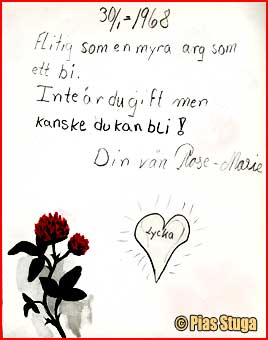 30/1-1968
Flitig som en myra arg som
ett bi.
Inte är du gift men
kanske du kan bli!
Din vän Rose-Marie
Lycka
© Pias Stuga